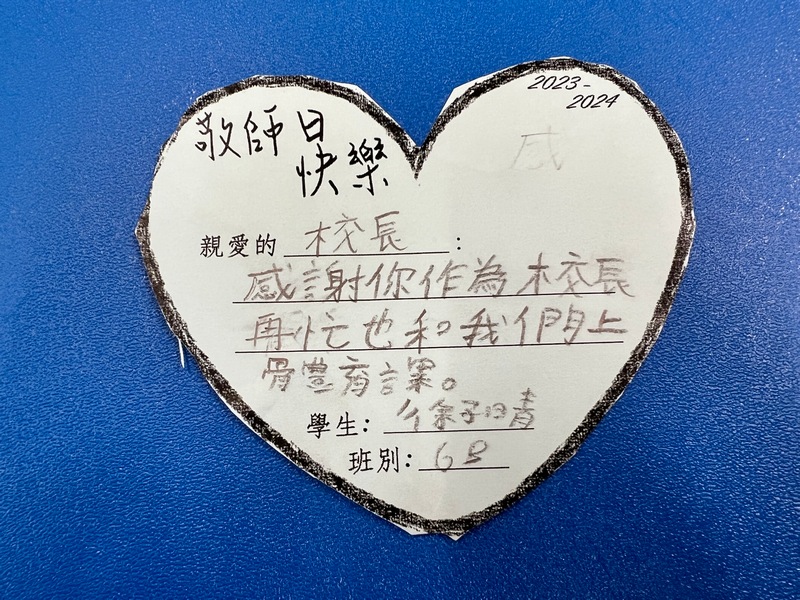 2023-
2024
敬師日
快樂
感
親愛的 校長 :
感謝你作為校長
再忙也和我們上
骨豊育課。
學生: 徐子晴
班別: 6B